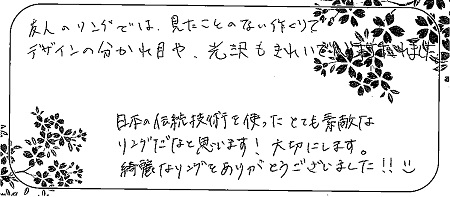 友人のリングでは、見たことのない作りで
デザインの分かれ目や、光沢もきれいで
日本の伝統技術を使ったとても素敵な
リングだなと思います！大切にします。
綺麗なリングをありがとうございました!!